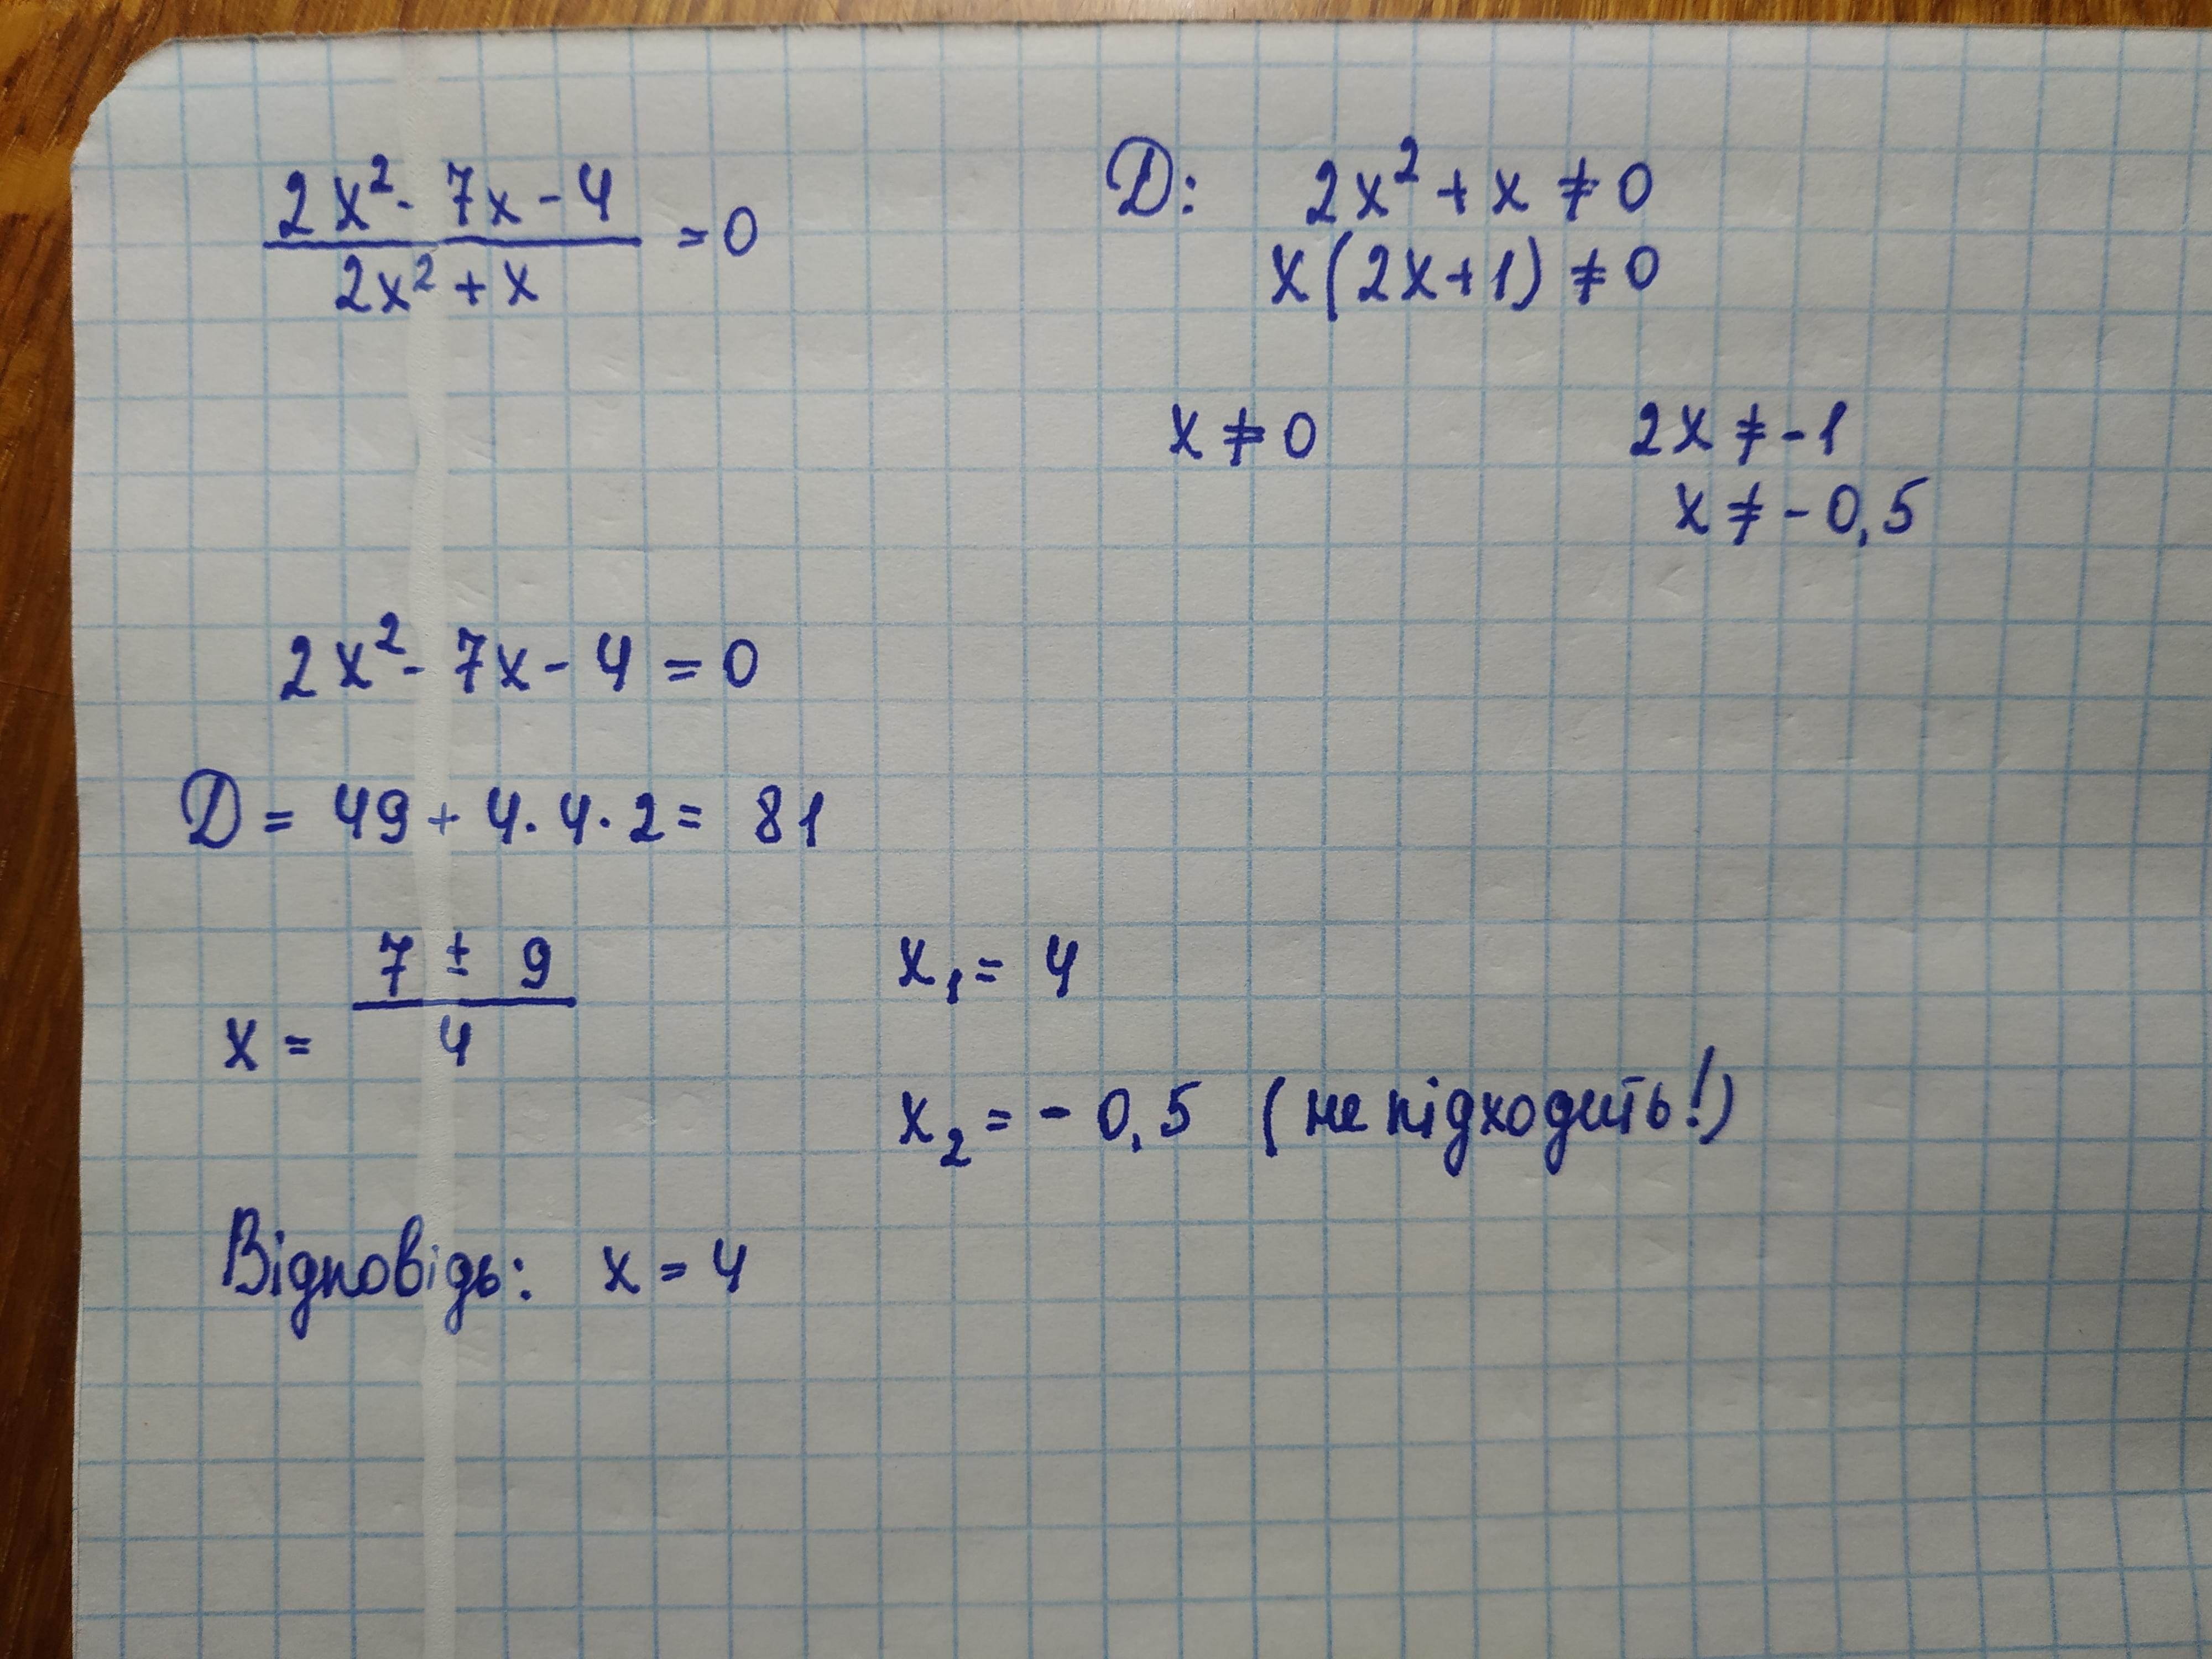 (2x² - 7x - 4)/(2x² + x) = 0
D: 2x² + x ≠ 0
x(2x+1) ≠ 0
x ≠ 0
2x ≠ -1
x ≠ -0,5
2x² - 7x - 4 = 0
D = 49 + 4·4·2 = 81
x = (7 ± 9)/4
x₁ = 4
x₂ = -0,5 (не підходить!)
Відповідь: x = 4